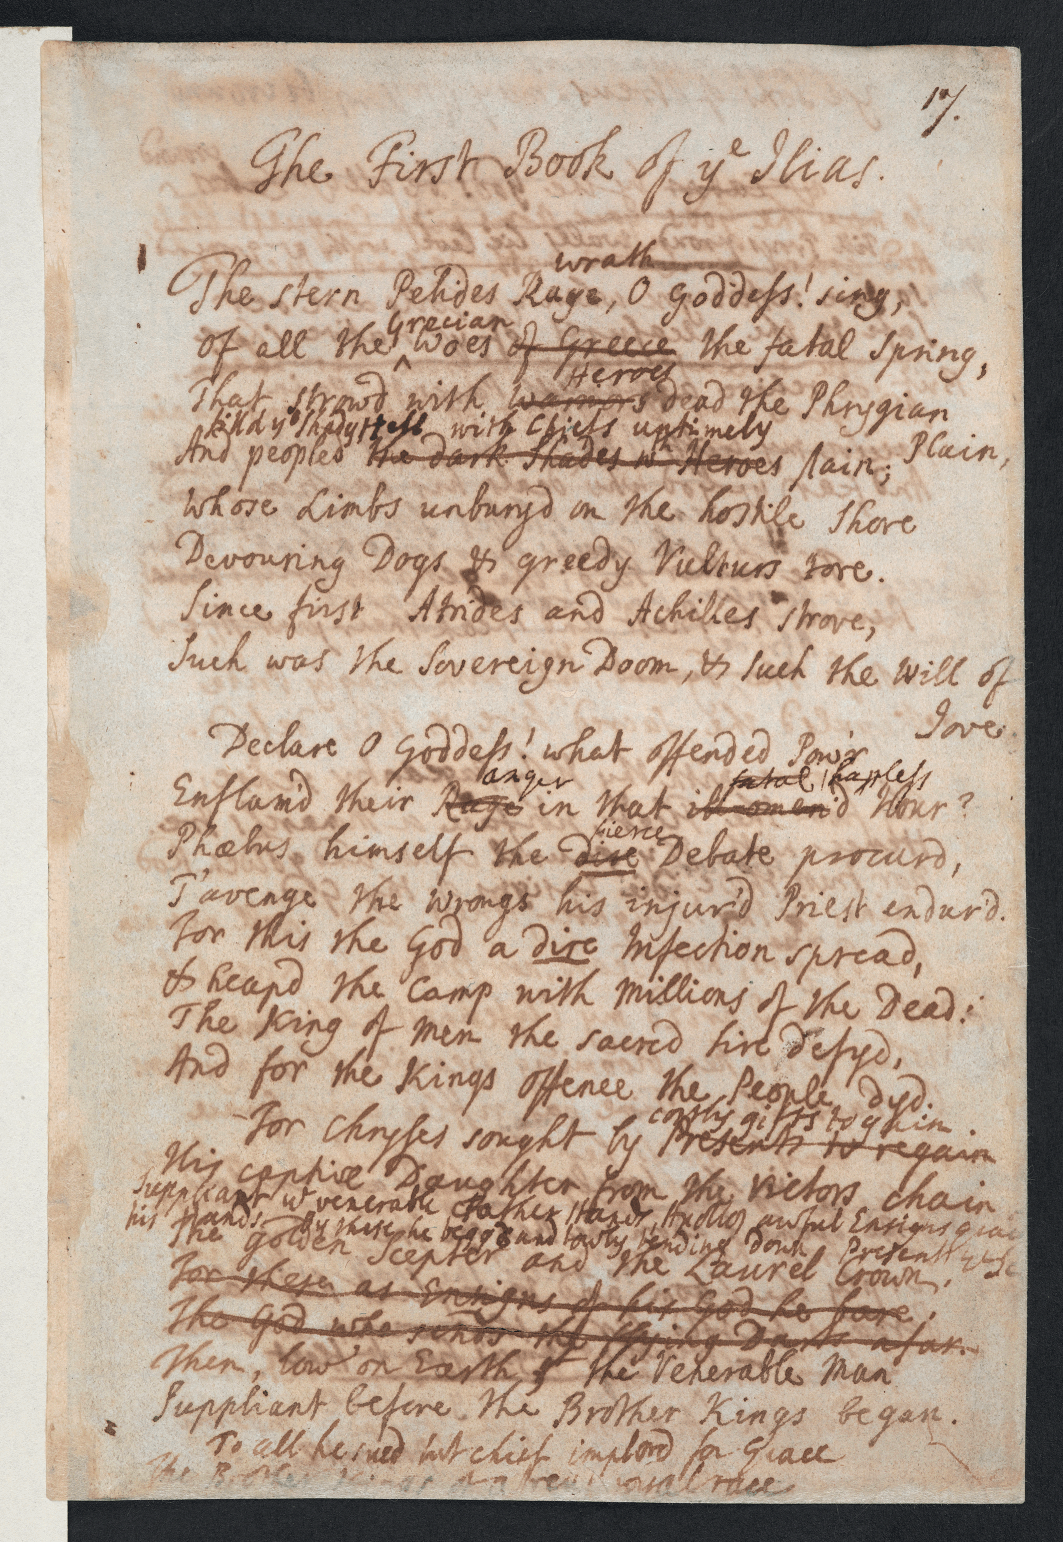 17.
The First Book of yͤ Ilias.
wrath
The stern Pelides Rage, O Goddess! sing,
Grecian
of all the woes of Greece the fatal Spring,
Heroes
That strowd with Warriors dead the Phrygian
Plain,
with Chiefs untimely
And peopled the dark Shades wth Heroes slain;
Whose Limbs unbury'd on the hostile Shore
Devouring Dogs & greedy Vulturs tore.
Since first Atrides and Achilles strove,
Such was the Sovereign Doom, & such the Will of
Jove.
Declare O Goddess! what offended Pow'r
anger fatal hapless
Enflam'd their Rage in that ill-omen'd Hour?
fierce
Phœbus himself the dire Debate procur'd,
T'avenge the wrongs his injur'd Priest endur'd.
For this the God a dire Infection spread,
& heap'd the Camp with Millions of the Dead:
The King of Men the sacred Sire defy'd,
And for the Kings offence the People dy'd.
costly gifts to gain
For Chryses sought by Presents to regain
His captive Daughter from the Victors chain
Suppliant ye venerable Father stands, Apollos awful Ensigns grace
his Hands. By these he begg'd and lowly bending down
The Golden Scepter and the Laurel Crown.
For these as Ensigns of his God he bare,
The God who sends the flying Darts afar.
Then, low on Earth, the Venerable Man
Suppliant before the Brother Kings began.
To all he sued but chief implor'd for Grace
The Brother Kings race